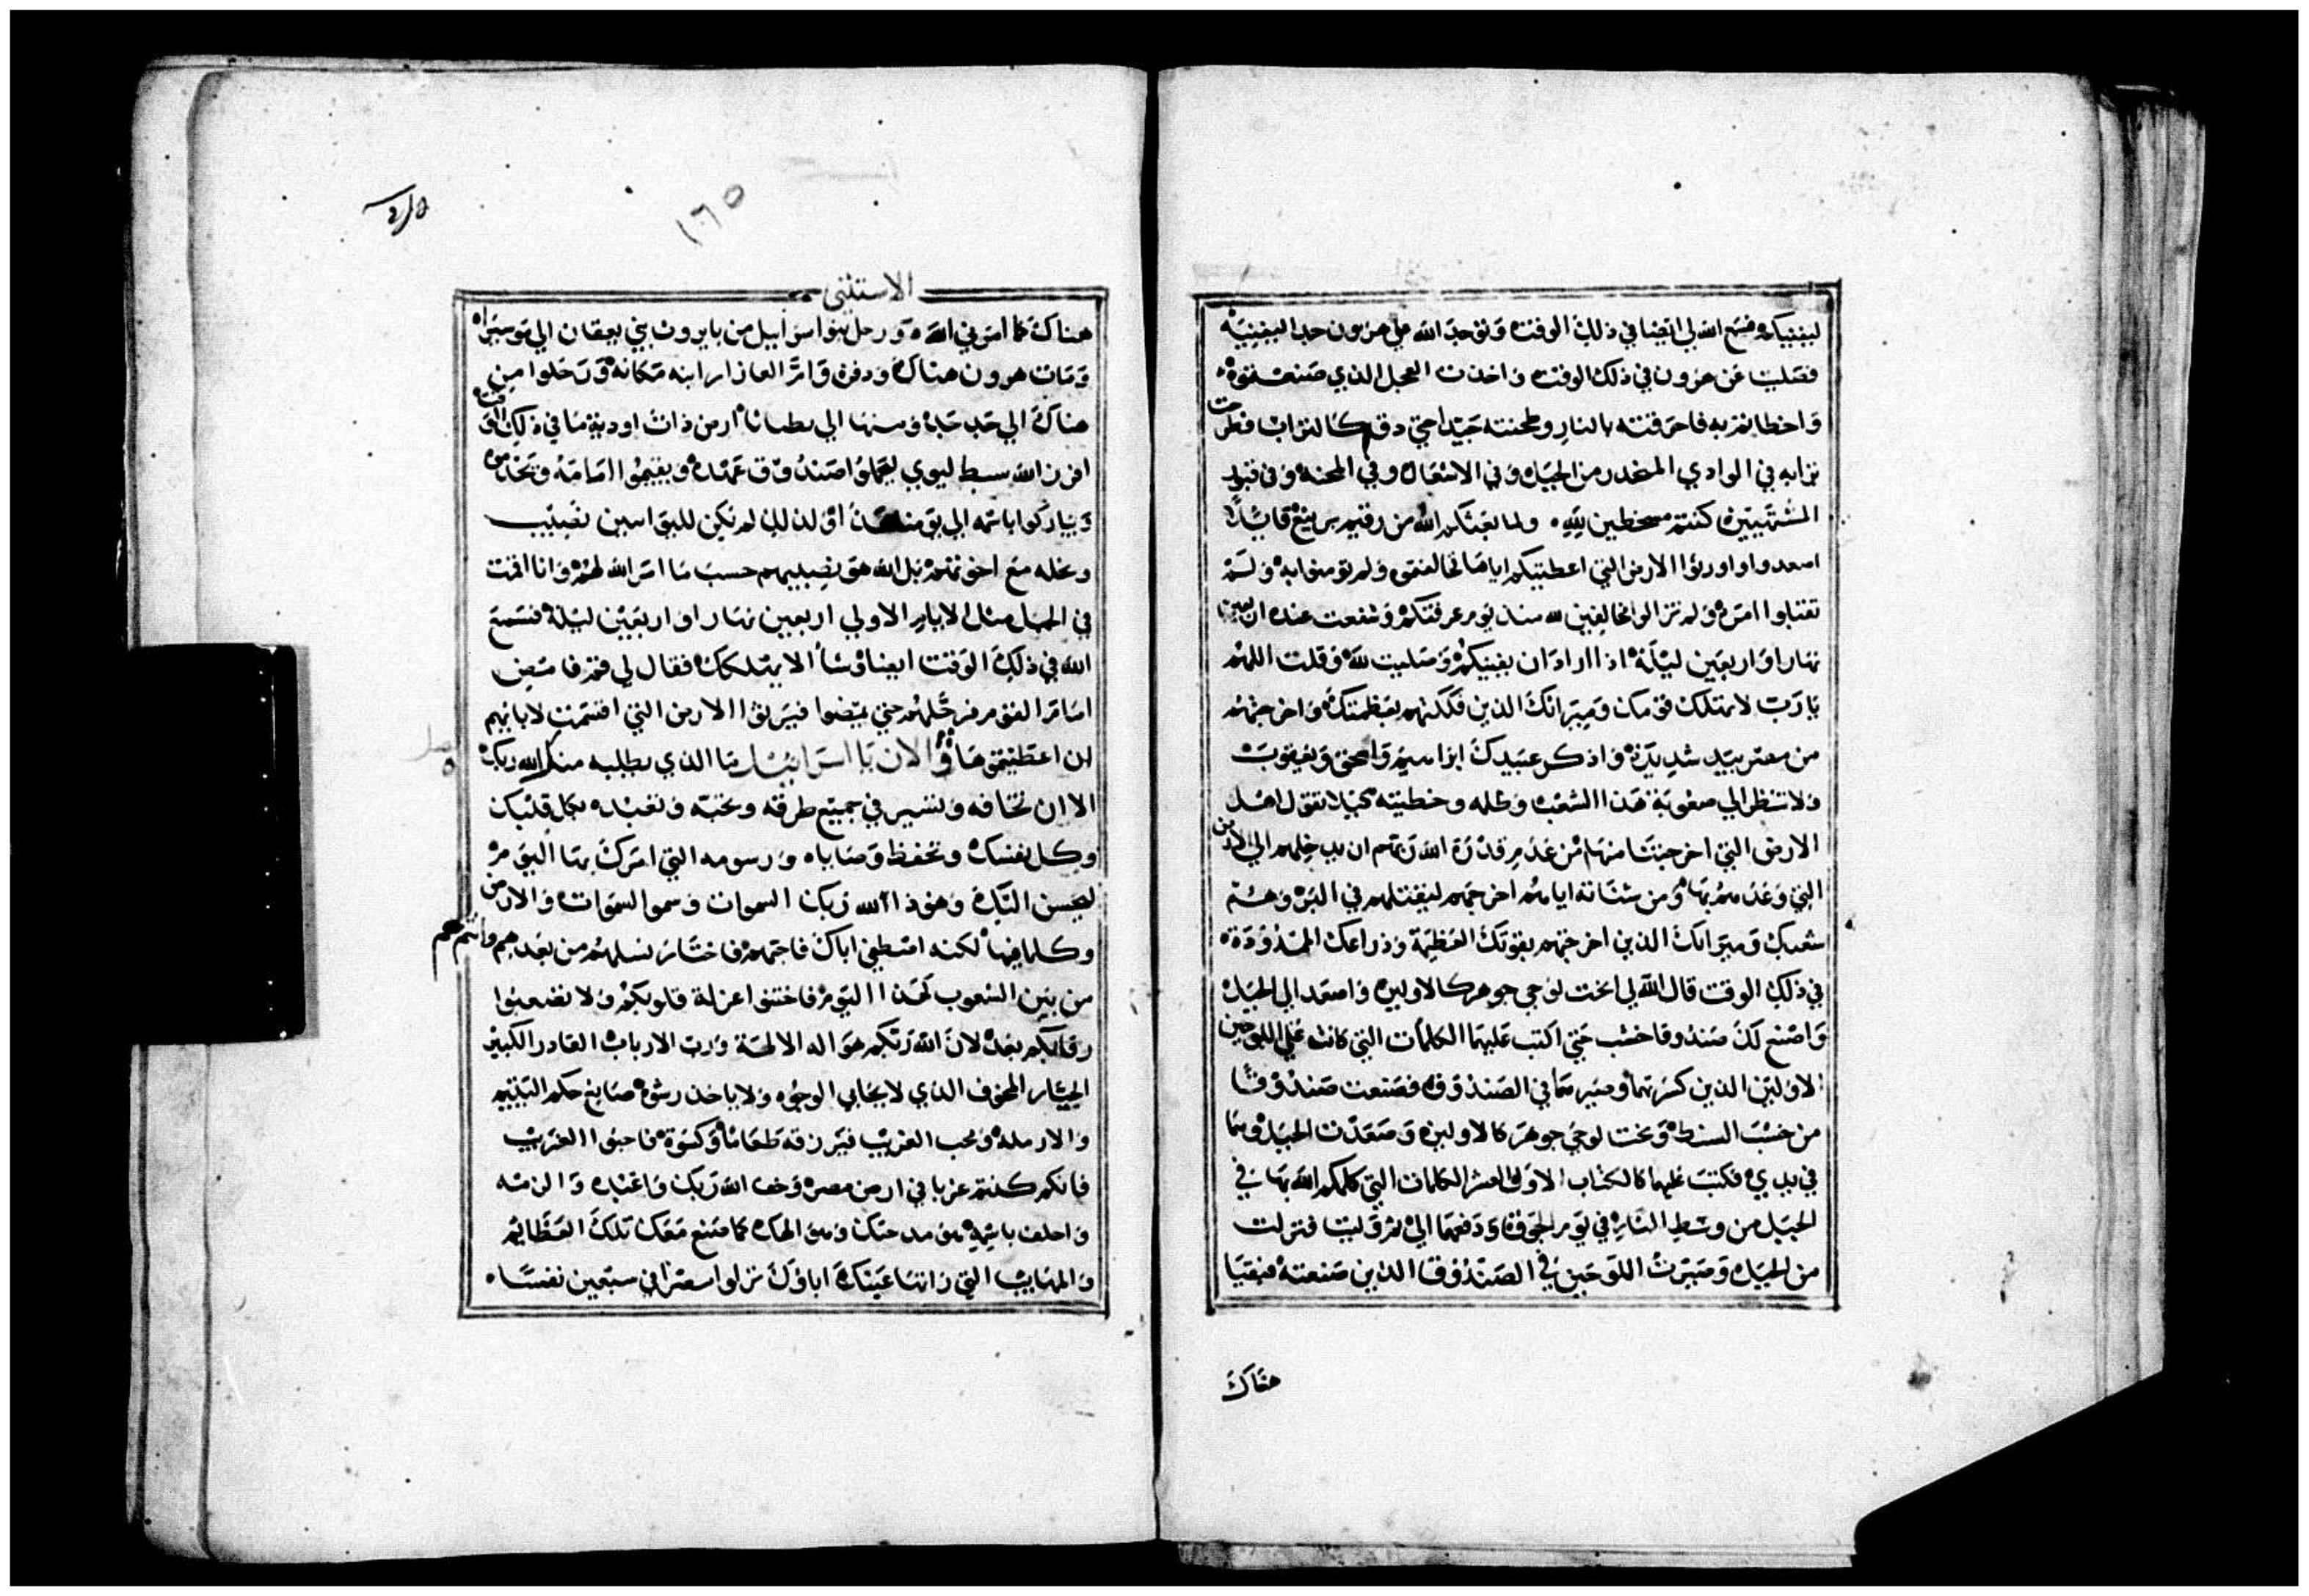 ليفنيكم فسمع الله لي ايضا في ذلك الوقت وتوجد الله علي هرون حدا ليفنيه
فصليت عن هرون في ذلك الوقت واخذت العجل الذي صنعتموه
واخطاتم به فاحرقته بالنار وطحنته جيدا حتي دق كالتراب فطرحت
ترابه في الوادي المنحدر من الجبل وفي الاشتعال وفي المحنه وفي قبور
المشتهيين كنتم مسخطين لله ولما بعثكم الله من رقيم برنيع قايلا
اصعدوا واورثوا الارض التي اعطيتكم اياها فخالفتم ولم تومنوا به ولم
تقبلوا امره ولم تزالوا مخالفين لله منذ يوم عرفتكم وشفعت عنده اربعين
نهارا واربعين ليلة اذا اراد ان يفنيكم وصليت لله وقلت اللهم
يا رب لا تهلك قومك وميراثك الذين فككتهم بعظمتك واخرجتهم
من مصر بيد شديدة واذكر عبيدك ابراهيم واسحق ويعقوب
ولا تنظر الي صعوبة هذا الشعب وظله وخطيته كيلا تقول اهل
الارض التي اخرجتنا منها من عدم قدرة الله ربهم ان يدخلهم الي الارض
التي وعدهم بها ومن شناته اياهم اخرجهم ليقتلهم في البر وهم
شعبك وميراثك الذين اخرجتهم بقوتك العظيمة وذراعك الممدودة
في ذلك الوقت قال الله لي انحت لوحي جوهر كالاولين واصعد الي الجبل
واصنع لك صندوقا خشب حتي اكتب عليهما الكلمات التي كانت علي اللوحين
الاولين الذين كسرتهما وصيرهما في الصندوق فصنعت صندوقا
من خشب السنط ونحت لوحي جوهر كالاولين وصعدت الجبل وهما
في يدي فكتب عليهما كالكتاب الاول العشر الكلمات التي كلمكم الله بها في
الجبل من وسط النار في يوم الجوق ودفعهما الي ثم وليت فنزلت
من الجبل وصيرت اللوحين في الصندوق الذين صنعته فبقيا
هناك
١٦٥
الاستثني
هناك كما امرني الله ورحل بنو اسراييل من بايروت بني يعقان الي موسيراه
ومات هرون هناك ودفن وام العازار ابنه مكانه ورحلوا من
هناك الي جدجد ومنها الي يطباثا ارض ذات اودية ما في ذلك الوقت
افرز الله سبط ليوي ليحملوا صندوق عهده ويقيموا امامه ويخدموه
ويباركوا باسمه الي يومنا هذا لذلك لم تكن لليواسين نصيب
ونحله مع اخوتهم بل الله هو نصيبهم حسب ما امر الله لهم وانا اقمت
في الجبل مثل الايام الاولي اربعين نهارا واربعين ليلة فسمع
الله في ذلك الوقت ايضا وشا الا يهلكك فقال لي قم فامض
امام القوم رحلهم حتي يمضوا فيرثوا الارض التي اقسمت لابايهم
ان اعطيتموها والان يا اسراييل ما الذي يطلبه منك الله ربك
الا ان تخافه وتسير في جميع طرقه وتحبه وتعبده بكل قلبك
وكل نفسك وتحفظ وصاياه ورسومه التي امرك بها اليوم
ليحسن اليك وهوذا الله ربك السموات وسمو السموات والارض
وكلما فيها لكنه اصطفي اباك فاحبهم فاختار نسلهم من بعدهم وانتم هم
من بين الشعوب كهذا اليوم فاختنوا عزلة قلوبكم ولا تصعبوا
رقابكم بعد لان الله ربكم هو اله الالهة ورب الارباب القادر الكبير
الجبار المخوف الذي لا يحابي الوجوه ولا ياخذ رشوه صانع حكم اليتيم
والارملة ومحب الغريب فيرزقه طعاما وكسوة فاحبوا الغريب
فانكم كنتم غربا في ارض مصر وخف الله ربك واعبده والزمه
واحلف باسمه هو مدحتك وهو الهك كما صنع معك تلك العظايم
والمهايب التي راتها عيناك اباوك نزلوا مصر في سبعين نفسا